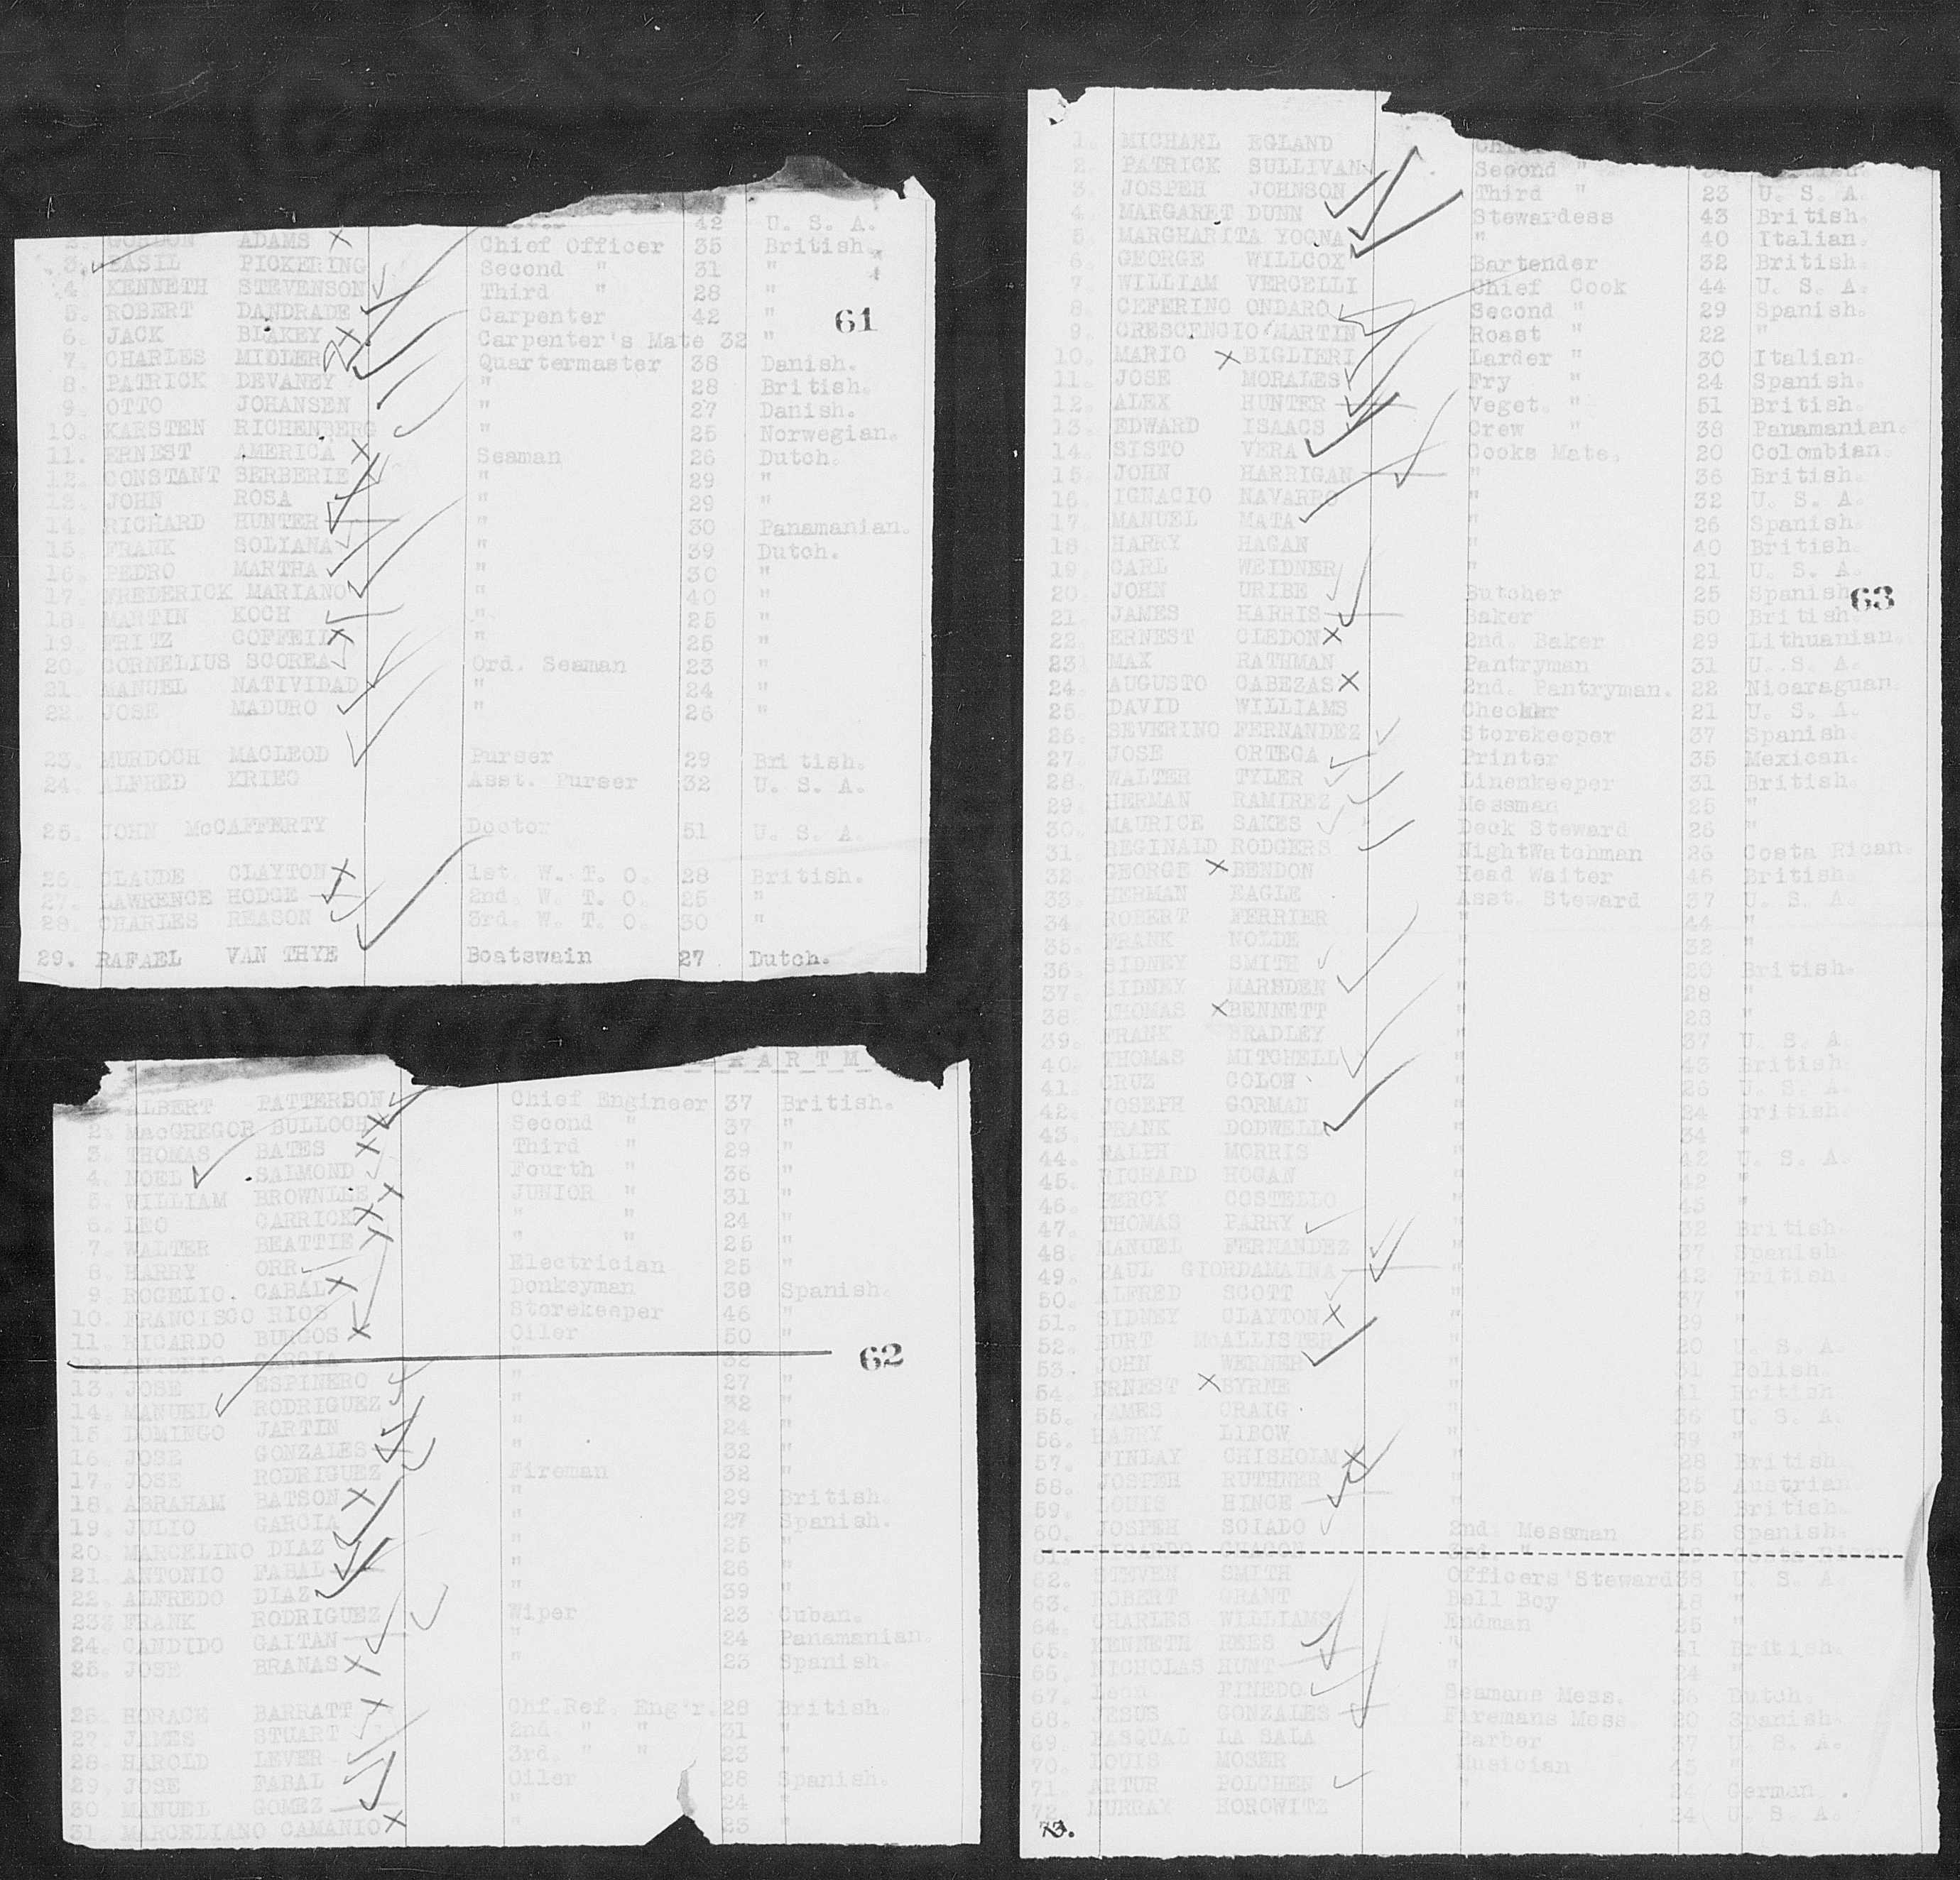 42 U. S. A.
2. GORDON ADAMS Chief Officer 35 British.
3. BASIL PICKERING Second " 31 "
4. KENNETH STEVENSON Third " 28 "
5. ROBERT DANDRADE Carpenter 42 "
61
6. JACK BLAKEY Carpenter's Mate 32 "
7. CHARLES MIDLER Quartermaster 38 Danish.
8. PATRICK DEVANEY " 28 British.
9. OTTO JOHANSEN " 27 Danish.
10. KARSTEN RICHENBERG " 25 Norwegian.
11. ERNEST AMERICA Seaman 26 Dutch.
12. CONSTANT SERBERIE " 29 "
13. JOHN ROSA " 29 "
14. RICHARD HUNTER " 30 Panamanian.
15. FRANK SOLIANA " 39 Dutch.
16. PEDRO MARTHA " 30 "
17. FREDERICK MARIANO " 40 "
18. MARTIN KOCH " 25 "
19. FRITZ COFFEII " 25 "
20. CORNELIUS SCOREA Ord. Seaman 23 "
21. MANUEL NATIVIDAD " 24 "
22. JOSE MADURO " 26 "
23. MURDOCH MACLEOD Purser 29 British.
24. ALFRED KRIEG Asst. Purser 32 U. S. A.
25. JOHN McCAFFERTY Doctor 51 U. S. A.
26. CLAUDE CLAYTON 1st. W. T. O. 28 British.
27. LAWRENCE HODGE 2nd. W. T. O. 25 "
28. CHARLES REASON 3rd. W. T. O. 30 "
29. RAFAEL VAN THYE Boatswain 27 Dutch.
A R T M
ALBERT PATTERSON Chief Engineer 37 British.
2. MacGREGOR BULLOCH Second " 37 "
3. THOMAS BATES Third " 29 "
4. NOEL SALMOND Fourth " 36 "
5. WILLIAM BROWNLIE JUNIOR " 31 "
6. LEO CARRICK " " 24 "
7. WALTER BEATTIE " " 25 "
8. HARRY ORR Electrician 25 "
9. ROGELIO. CABAL Donkeyman 39 Spanish.
10. FRANCISCO RIOS Storekeeper 46 "
11. RICARDO BURGOS Oiler 50 "
12. ANTONIO GARCIA " 32 "
62
13. JOSE ESPINERO " 27 "
14. MANUEL RODRIGUEZ " 32 "
15. DOMINGO JARTIN " 24 "
16. JOSE GONZALES " 32 "
17. JOSE RODRIGUEZ Fireman 32 "
18. ABRAHAM BATSON " 29 British.
19. JULIO GARCIA " 27 Spanish.
20. MARCELINO DIAZ " 25 "
21. ANTONIO FABAL " 26 "
22. ALFREDO DIAZ " 39 "
23. FRANK RODRIGUEZ Wiper 23 Cuban.
24. CANDIDO GAITAN " 24 Panamanian.
25. JOSE BRANAS " 23 Spanish.
26. HORACE BARRATT Chf.Ref. Eng'r. 28 British.
27. JAMES STUART 2nd. " " 31 "
28. HAROLD LEVER 3rd. " " 23 "
29. JOSE FABAL Oiler 28 Spanish.
30 MANUEL GOMEZ " 24 "
31 MARCELIANO CAMANIO " 23 "
1. MICHAEL EGLAND
2. PATRICK SULLIVAN Second "
3. JOSPEH JOHNSON Third " 23 U. S. A.
4. MARGARET DUNN Stewardess 43 British.
5. MARGHARITA YOGNA " 40 Italian.
6. GEORGE WILLCOX Bartender 32 British.
7. WILLIAM VERCELLI Chief Cook 44 U. S. A.
8. CEFERINO ONDARO Second " 29 Spanish.
9. CRESCENCIO MARTIN Roast " 22 "
10. MARIO BIGLIERI Larder " 30 Italian.
11. JOSE MORALES Fry " 24 Spanish.
12. ALEX HUNTER Veget. " 51 British.
13. EDWARD ISAACS Crew " 38 Panamanian.
14. SISTO VERA Cooks Mate. 20 Colombian.
15. JOHN HARRIGAN " 36 British.
16. IGNACIO NAVARRO " 32 U. S. A.
17. MANUEL MATA " 26 Spanish.
18 HARRY HAGAN " 40 British.
19. CARL WEIDNER " 21 U. S. A.
20. JOHN URIBE Butcher 25 Spanish
63
21. JAMES HARRIS Baker 50 British.
22. ERNEST CLEDON 2nd. Baker 29 Lithuanian.
23. MAX RATHMAN Pantryman 31 U. S. A.
24. AUGUSTO CABEZAS 2nd. Pantryman. 22 Nicaraguan.
25. DAVID WILLIAMS Checker 21 U. S. A.
26. SEVERINO FERNANDEZ Storekeeper 37 Spanish.
27. JOSE ORTEGA Printer 35 Mexican.
28. WALTER TYLER Linenkeeper 31 British.
29. HERMAN RAMIREZ Messman 25 "
30. MAURICE SAKES Deck Steward 26 "
31. REGINALD RODGERS NightWatchman 26 Costa Rican.
32. GEORGE BENDON Head Waiter 46 British.
33. HERMAN EAGLE Asst. Steward 37 U. S. A.
34 ROBERT FERRIER " 44 "
35. FRANK NOLDE " 32 "
36. SIDNEY SMITH " 20 British.
37. SIDNEY MARSDEN " 28 "
38. THOMAS BENNETT " 28 "
39. FRANK BRADLEY " 37 U. S. A.
40. THOMAS MITCHELL " 43 British.
41. CRUZ COLON " 26 U. S. A.
42. JOSEPH GORMAN " 24 British.
43. FRANK DODWELL " 34 "
44. RALPH MORRIS " 42 U. S. A.
45. RICHARD HOGAN " 42 "
46. PERCY COSTELLO " 45 "
47. THOMAS PARRY " 32 British.
48. MANUEL FERNANDEZ " 37 Spanish
49. PAUL GIORDAMAINA " 42 British.
50. ALFRED SCOTT " 37 "
51. SIDNEY CLAYTON " 29 "
52. BURT McALLISTER " 20 U. S. A.
53. JOHN WERNER " 31 Polish.
54. ERNEST BYRNE " 41 British
55. JAMES CRAIG " 36 U. S. A.
56. HARRY LIBOW " 39 "
57. FINLAY CHISHOLM " 28 British.
58. JOSPEH RUTHNER " 25 Austrian.
59. LOUIS HINCE " 25 British.
60. JOSPEH SCIADO 2nd. Messman 25 Spanish.
61. RICARDO CHACON 3rd. " Costa Rican
62. STEVEN SMITH Officers Steward 38 U. S. A.
63. ROBERT GRANT Bell Boy 18 "
64. CHARLES WILLIAMS Endman 25 "
65. KENNETH REES " 41 British.
66. NICHOLAS HUNT " 24 "
67. Leon PINEDO Seamans Mess. 36 Dutch.
68. JESUS GONZALES Firemans Mess. 20 Spanish.
69. PASQUAL LA SALA Barber 37 U. S. A.
70. LOUIS MOSER Musician 45 "
71. ARTUR POLCHEN " 24 German.
72. MURRAY HOROWITZ " 24 U. S. A.
73.